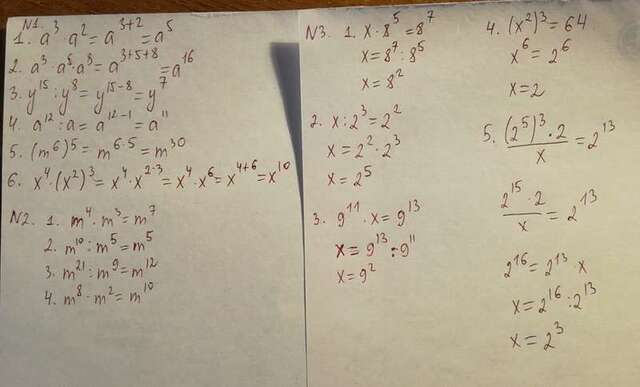 N1.
1. a³ a² = a³⁺² = a⁵
2. a³ · a⁵ · a⁸ = a³⁺⁵⁺⁸ = a¹⁶
3. y¹⁵ : y⁸ = y¹⁵⁻⁸ = y⁷
4. a¹² : a = a¹²⁻¹ = a¹¹
5. (m⁶)⁵ = m⁶·⁵ = m³⁰
6. x⁴ · (x²)³ = x⁴ · x²·³ = x⁴ · x⁶ = x⁴⁺⁶ = x¹⁰
N2. 1. m⁴ · m³ = m⁷
2. m¹⁰ : m⁵ = m⁵
3. m²¹ : m⁹ = m¹²
4. m⁸ · m² = m¹⁰
N3. 1. x · 8⁵ = 8⁷
x = 8⁷ : 8⁵
x = 8²
2. x : 2³ = 2²
x = 2² · 2³
x = 2⁵
3. 9¹¹ · x = 9¹³
x = 9¹³ : 9¹¹
x = 9²
4. (x²)³ = 64
x⁶ = 2⁶
x = 2
5. (2⁵)³ · 2 / x = 2¹³
2¹⁵ · 2 / x = 2¹³
2¹⁶ = 2¹³ · x
x = 2¹⁶ : 2¹³
x = 2³